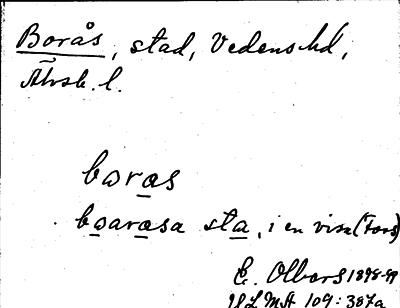 Borås, stad, Vedens hd,
Älvsb. l.
boras
boarasa sta, i en visa (Fors)
E. Olbers 1898-99
ULMA 109:387a